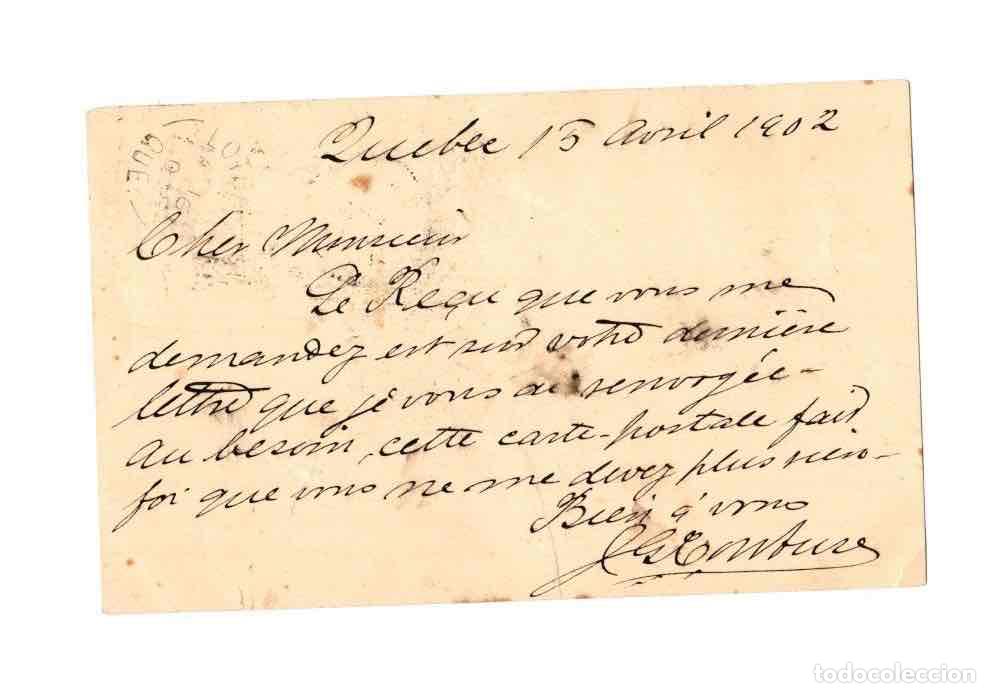 Quebec 15 Avril 1902
QUE
Cher Monsieur
Le Reçu que vous me
demandez est sur votre dernière
lettre que je vous ai renvoyée -
au besoin, cette carte-postale fait
foi que vous ne me devez plus rien -
Bien à vous
todocoleccion